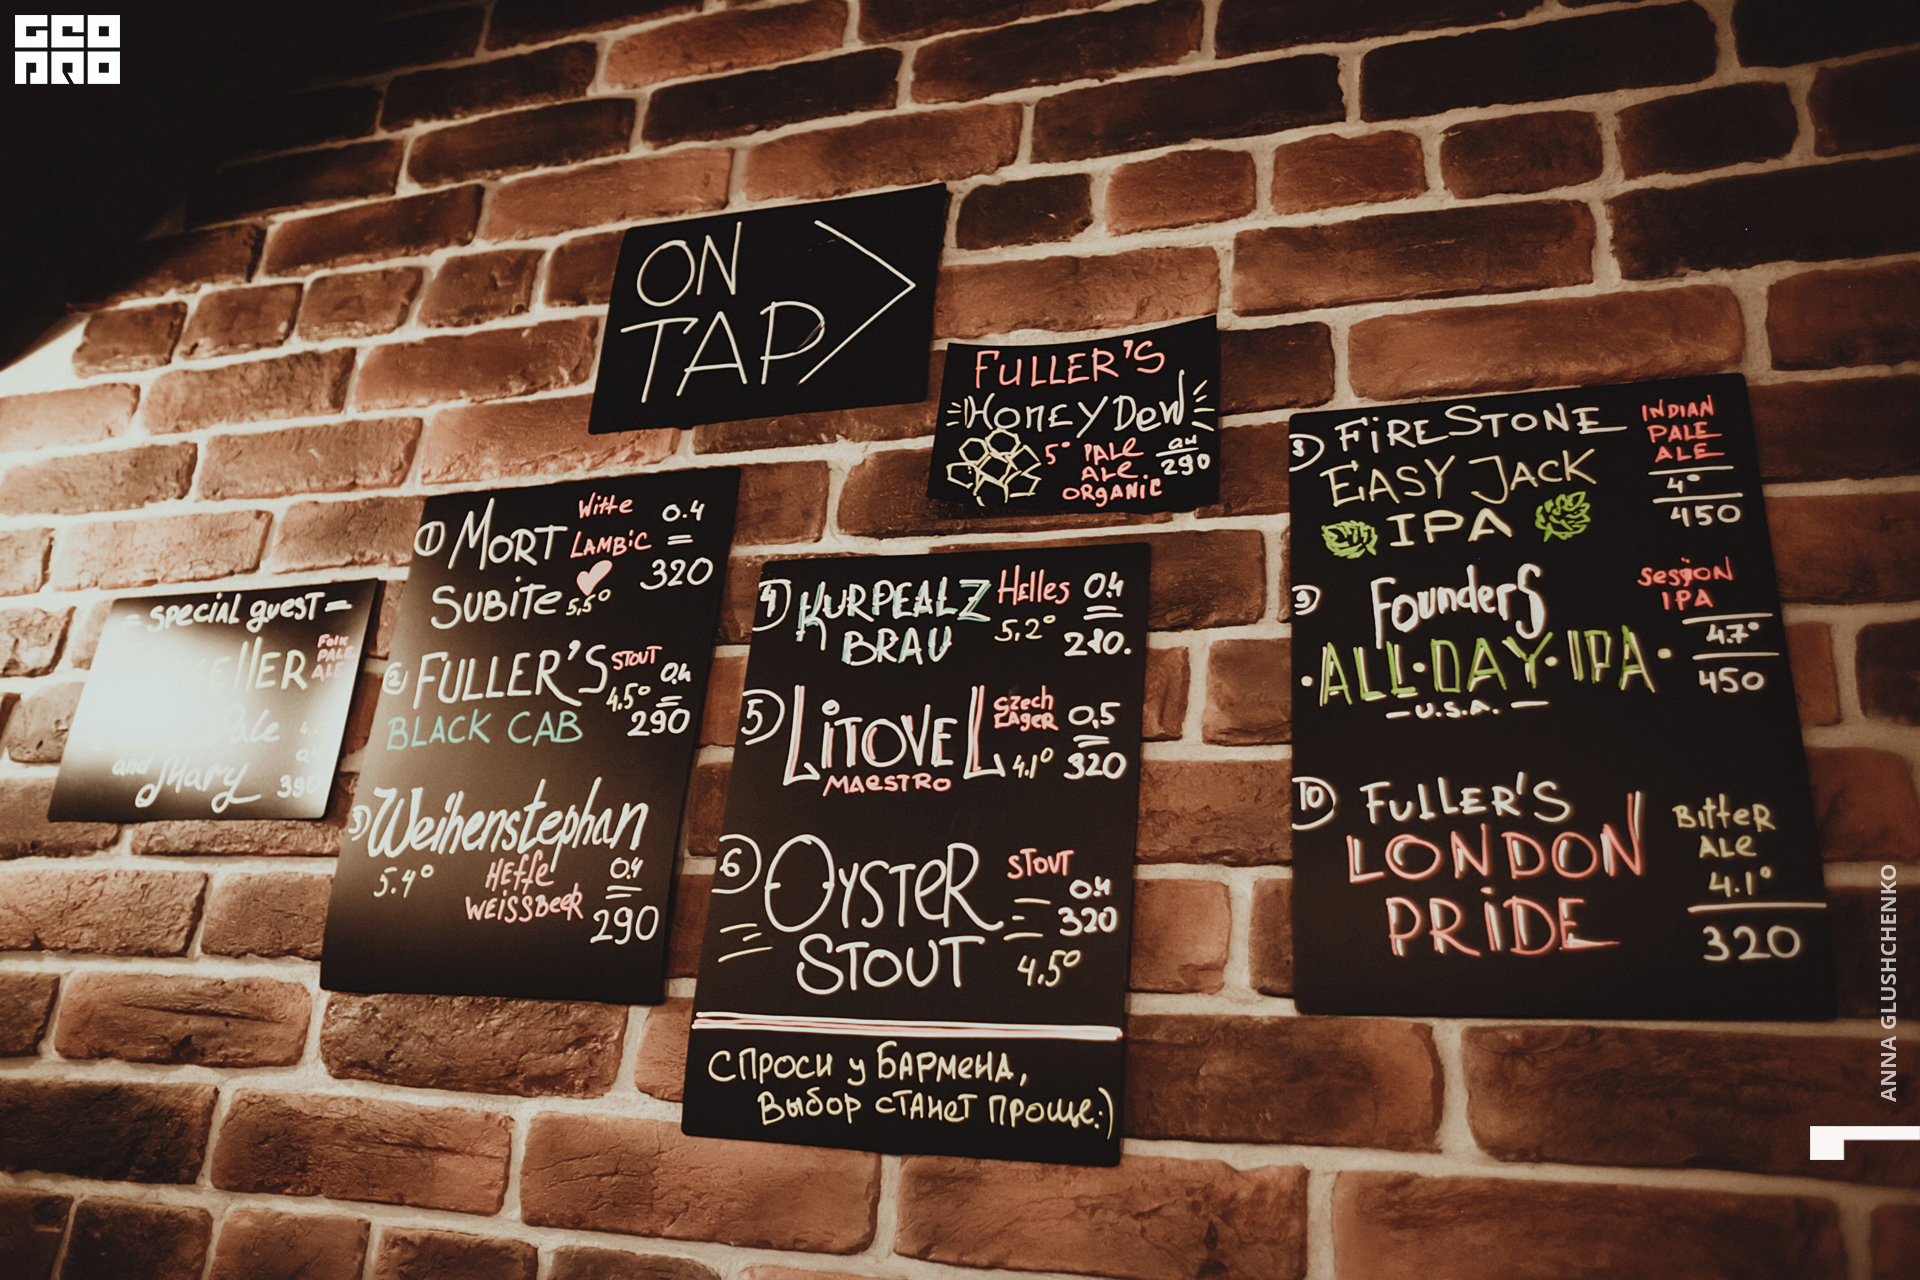 GEO
PRO
ON
TAP
FULLER'S
HONEY DEW
5° PALE
ALE
ORGANIC
0.4
290
- special guest -
ELLER
FOLK
PALE
ALE
Pale
and Mary
390
1 MORT
SUBITE
Witte
LAMBIC
5,5°
0.4
320
2 FULLER'S
BLACK CAB
STOUT
4.5°
0.4
290
3 Weihenstephan
5.4°
HEFFE
WEISSBEER
0.4
290
4 KURPEALZ
BRAU
Helles
5,2°
0.4
280.
5 LITOVEL
MAESTRO
CZECH
LAGER
4.1°
0,5
320
6 OYSTER
STOUT
STOUT
0.4
320
4.5°
СПРОСИ у БАРМЕНА,
Выбор СТАНЕТ ПРОЩЕ:)
8 FIRESTONE
EASY JACK
IPA
INDIAN
PALE
ALE
4°
450
9 Founders
·ALL·DAY·IPA·
- U.S.A. -
Session
IPA
4.7°
450
10 FULLER'S
LONDON
PRIDE
BITTER
ALE
4.1°
320
ANNA GLUSHCHENKO